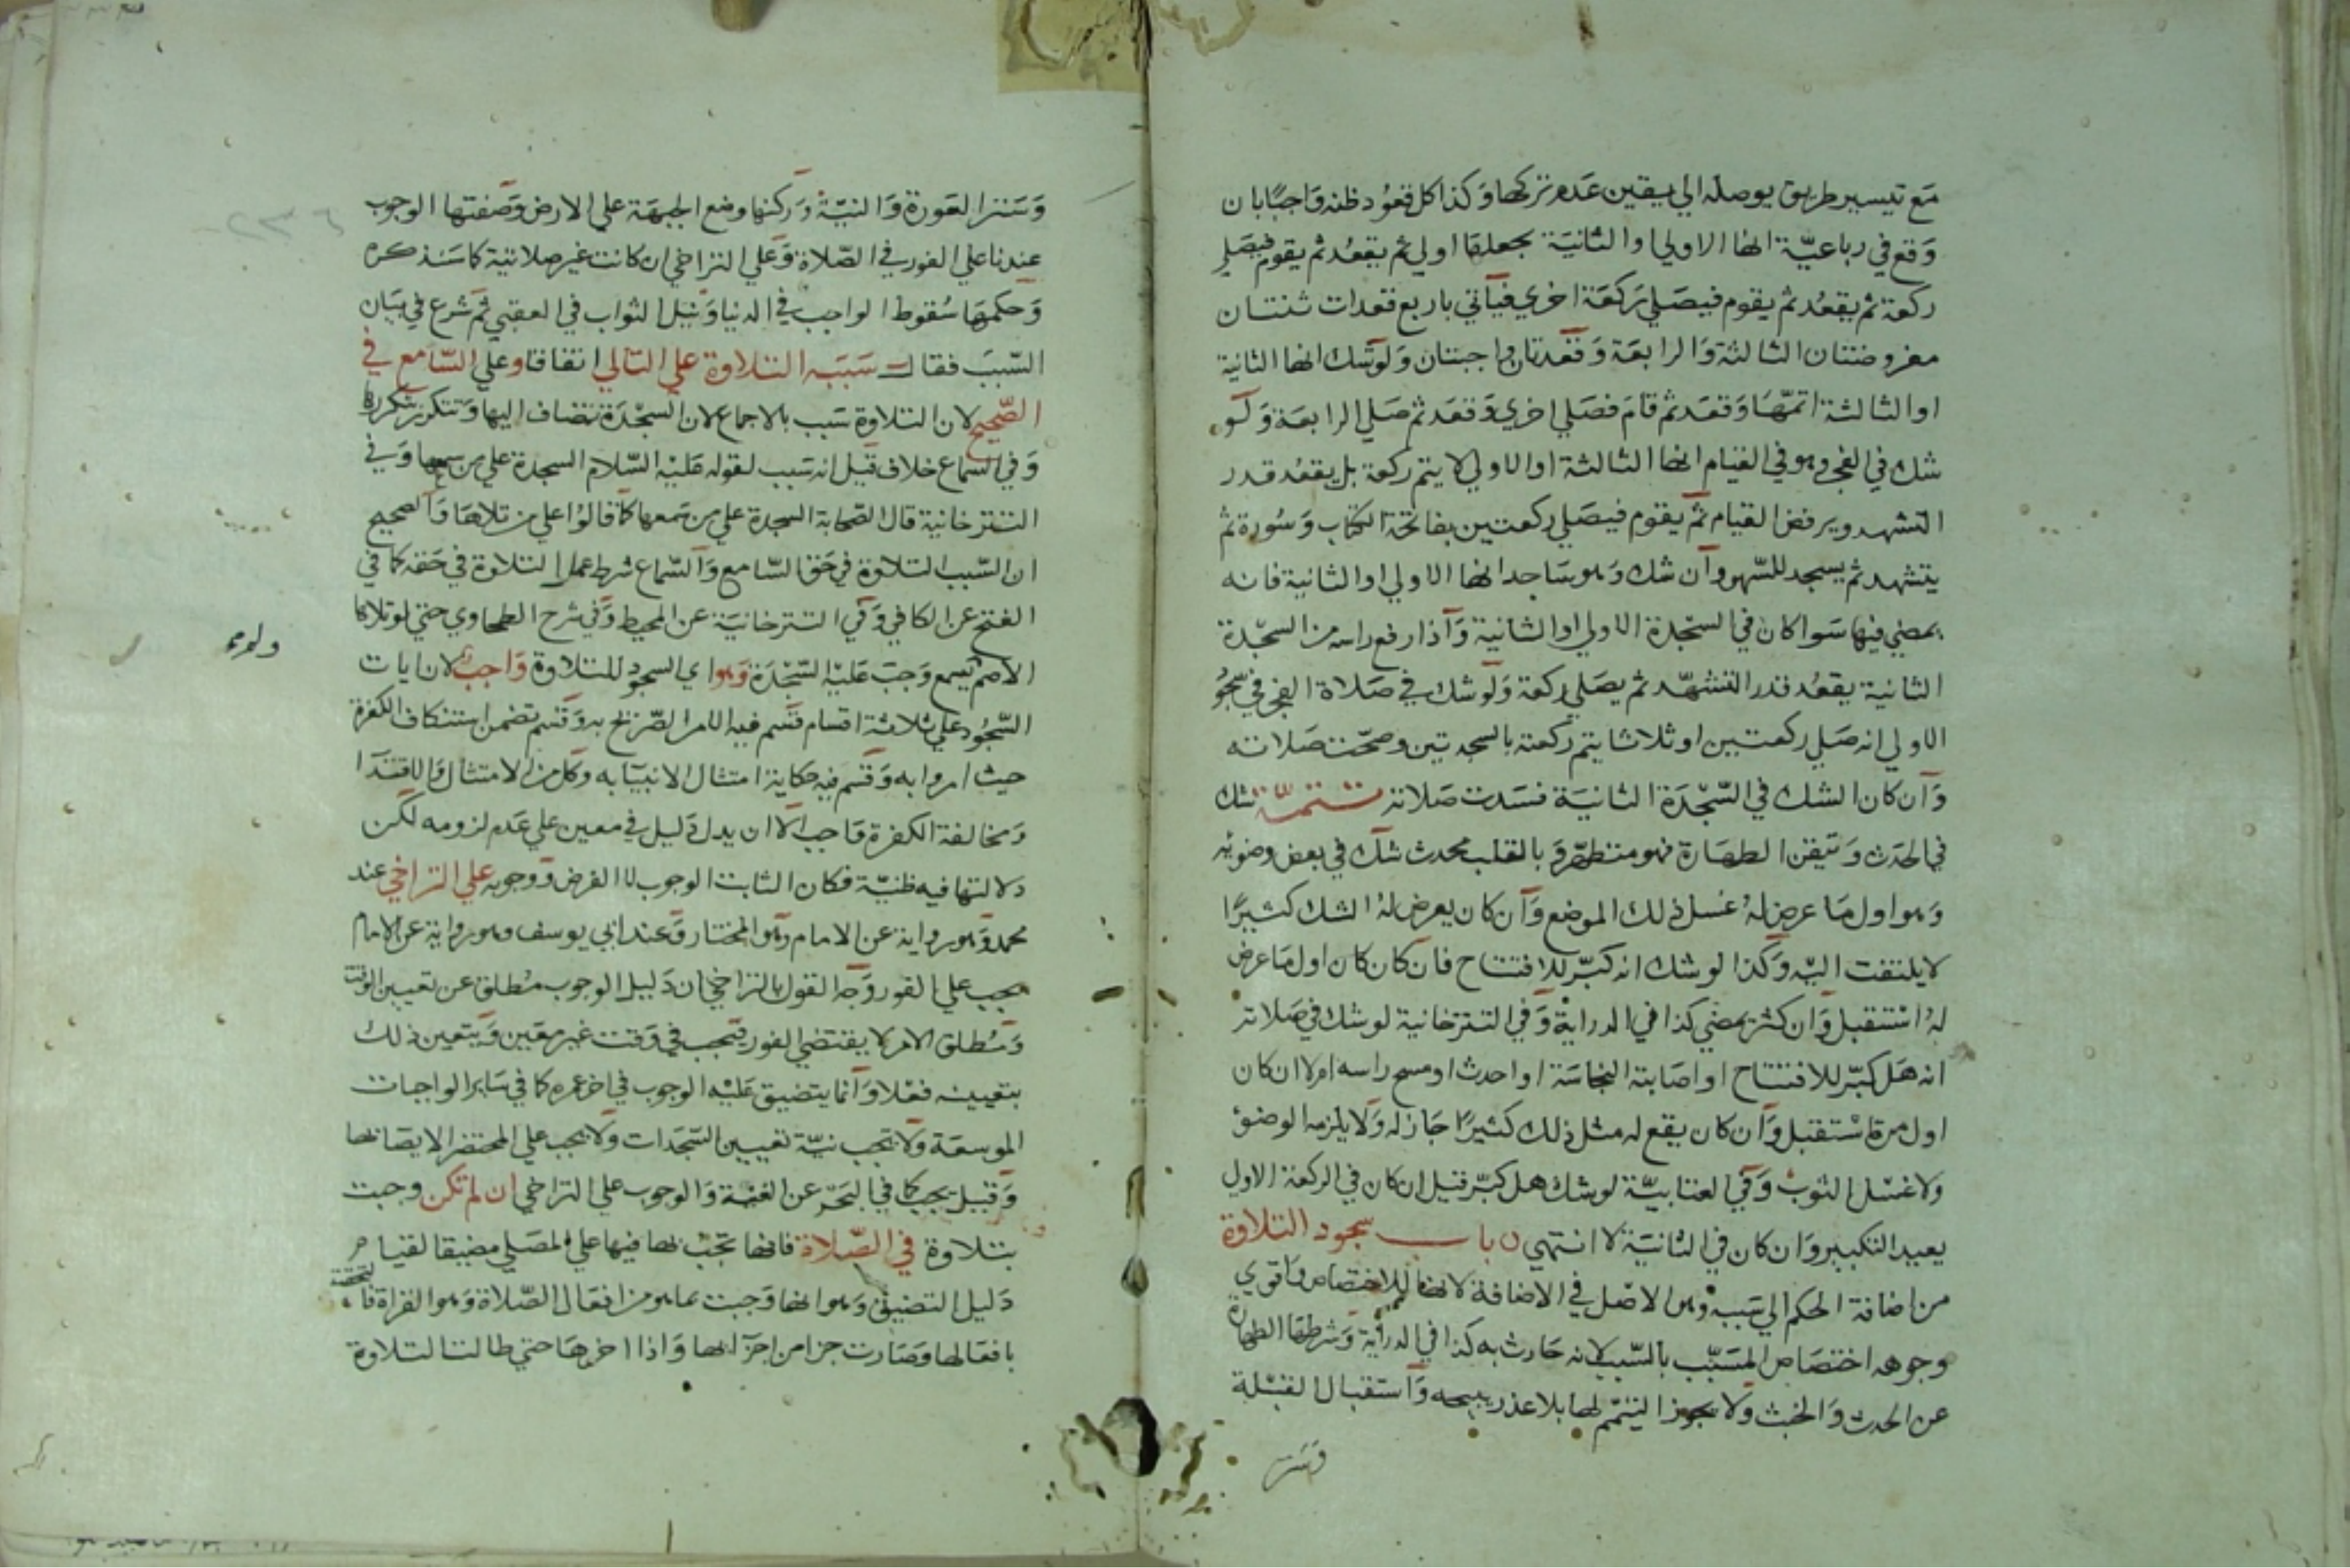 مع تيسير طريق يوصله الي يقين عدم تركها وكذا كل قعود ظنه واجبا بان
وقع في رباعية انها الاولي او الثانية يجعلها اولي ثم يقعد ثم يقوم فيصلي
ركعة ثم يقعد ثم يقوم فيصلي ركعة اخري فياتي باربع قعدات ثنتان
مفروضتان الثالثة والرابعة وقعدتان واجبتان ولو شك انها الثانية
او الثالثة اتمها وقعد ثم قام فصلي اخري وقعد ثم صلي الرابعة ولو
شك في الفجر وهو في القيام انها الثالثة او الاولي لا يتم ركعة بل يقعد قدر
التشهد ويرفض القيام ثم يقوم فيصلي ركعتين بفاتحة الكتاب وسورة ثم
يتشهد ثم يسجد للسهو وان شك وهو ساجد انها الاولي او الثانية فانه
يمضي فيها سوا كان في السجدة الاولي او الثانية واذا رفع راسه من السجدة
الثانية يقعد قدر التشهد ثم يصلي ركعة ولو شك في صلاة الفجر في سجو
الاولي انه صلي ركعتين او ثلاثا يتم ركعته بالسجدتين وصحت صلاته
وان كان الشك في السجدة الثانية فسدت صلاته تتمة شك
في الحدث وتيقن الطهارة فهو متطهر وبالقلب محدث شك في بعض وضوئه
وهو اول ما عرض له غسل ذلك الموضع وان كان يعرض له الشك كثيرا
لا يلتفت اليه وكذا لو شك انه كبر للافتتاح فان كان كان اول ما عرض
له استقبل وان كثر يمضي كذا في الدراية وفي التترخانية لو شك في صلاته
انه هل كبر للافتتاح او اصابته النجاسة او احدث او مسح راسه ام لا ان كان
اول مرة استقبل وان كان يقع له مثل ذلك كثيرا جاز له ولا يلزمه الوضؤ
ولا غسل الثوب وفي العتابية لو شك هل كبر قيل ان كان في الركعة الاول
يعيد التكبير وان كان في الثانية لا انتهي باب سجود التلاوة
من اضافة الحكم الي سببه وهو الاصل في الاضافة لانها للاختصاص واقوي
وجوهه اختصاص المسبب بالسبب لانه حادث به كذا في الدراية وشرطها الطهارة
عن الحدث والخبث ولا يجوز التيمم لها بلا عذر يبيحه واستقبال القبلة
وستر
وستر العورة والنية وركنها وضع الجبهة علي الارض وصفتها الوجوب
عندنا علي الفور في الصلاة وعلي التراخي ان كانت غير صلاتية كما سنذكره
وحكمها سقوط الواجب في الدنيا ونيل الثواب في العقبي ثم شرع في بيان
السبب فقال سببه التلاوة علي التالي اتفاقا وعلي السامع في
الصحيح لان التلاوة سبب بالاجماع لان السجدة تضاف اليها وتتكرر بتكررها
وفي السماع خلاف قيل انه سبب لقوله عليه السلام السجدة علي من سمعها وفي
التترخانية قال الصحابة السجدة علي من سمعها كما قالوا علي من تلاها والصحيح
ان السبب التلاوة في حق السامع والسماع شرط عمل التلاوة في حقه كما في
الفتح عن الكافي وفي التترخانية عن المحيط وفي شرح الطحاوي حتي لو تلاها
الاصم وجب عليه السجدة وهو اي السجود للتلاوة واجب لان ايات
السجود علي ثلاثة اقسام قسم فيه الامر الصريح به وقسم تضمن استنكاف الكفرة
حيث امروا به وقسم فيه حكاية امتثال الانبيا به وكل من الامتثال والاقتدا
ومخالفة الكفرة واجب الا ان يدل دليل في معين علي عدم لزومه لكن
دلالتها فيه ظنية فكان الثابت الوجوب لا الفرض ووجوبه علي التراخي عند
محمد وهو رواية عن الامام وهو المختار وعند ابي يوسف وهو رواية عن الامام
يجب علي الفور وجه القول بالتراخي ان دليل الوجوب مطلق عن تعيين الوقت
ومطلق الامر لا يقتضي الفور فتجب في وقت غير معين ويتعين ذلك
بتعيينه فعلا وانما يتضيق عليه الوجوب في اخر عمره كما في ساير الواجبات
الموسعة ولا تجب نية تعيين السجدات ولا يجب علي المحتضر الايصا بها
وقيل يجب كما في البحر عن القنية والوجوب علي التراخي ان لم تكن وجبت
بتلاوة في الصلاة فانها تجب بها فيها علي المصلي مضيقا لقيام
دليل التضييق وهو انها وجبت بما هو من افعال الصلاة وهو القراة فا
بافعالها وصارت جزا من اجزائها واذا اخرها حتي طالت التلاوة